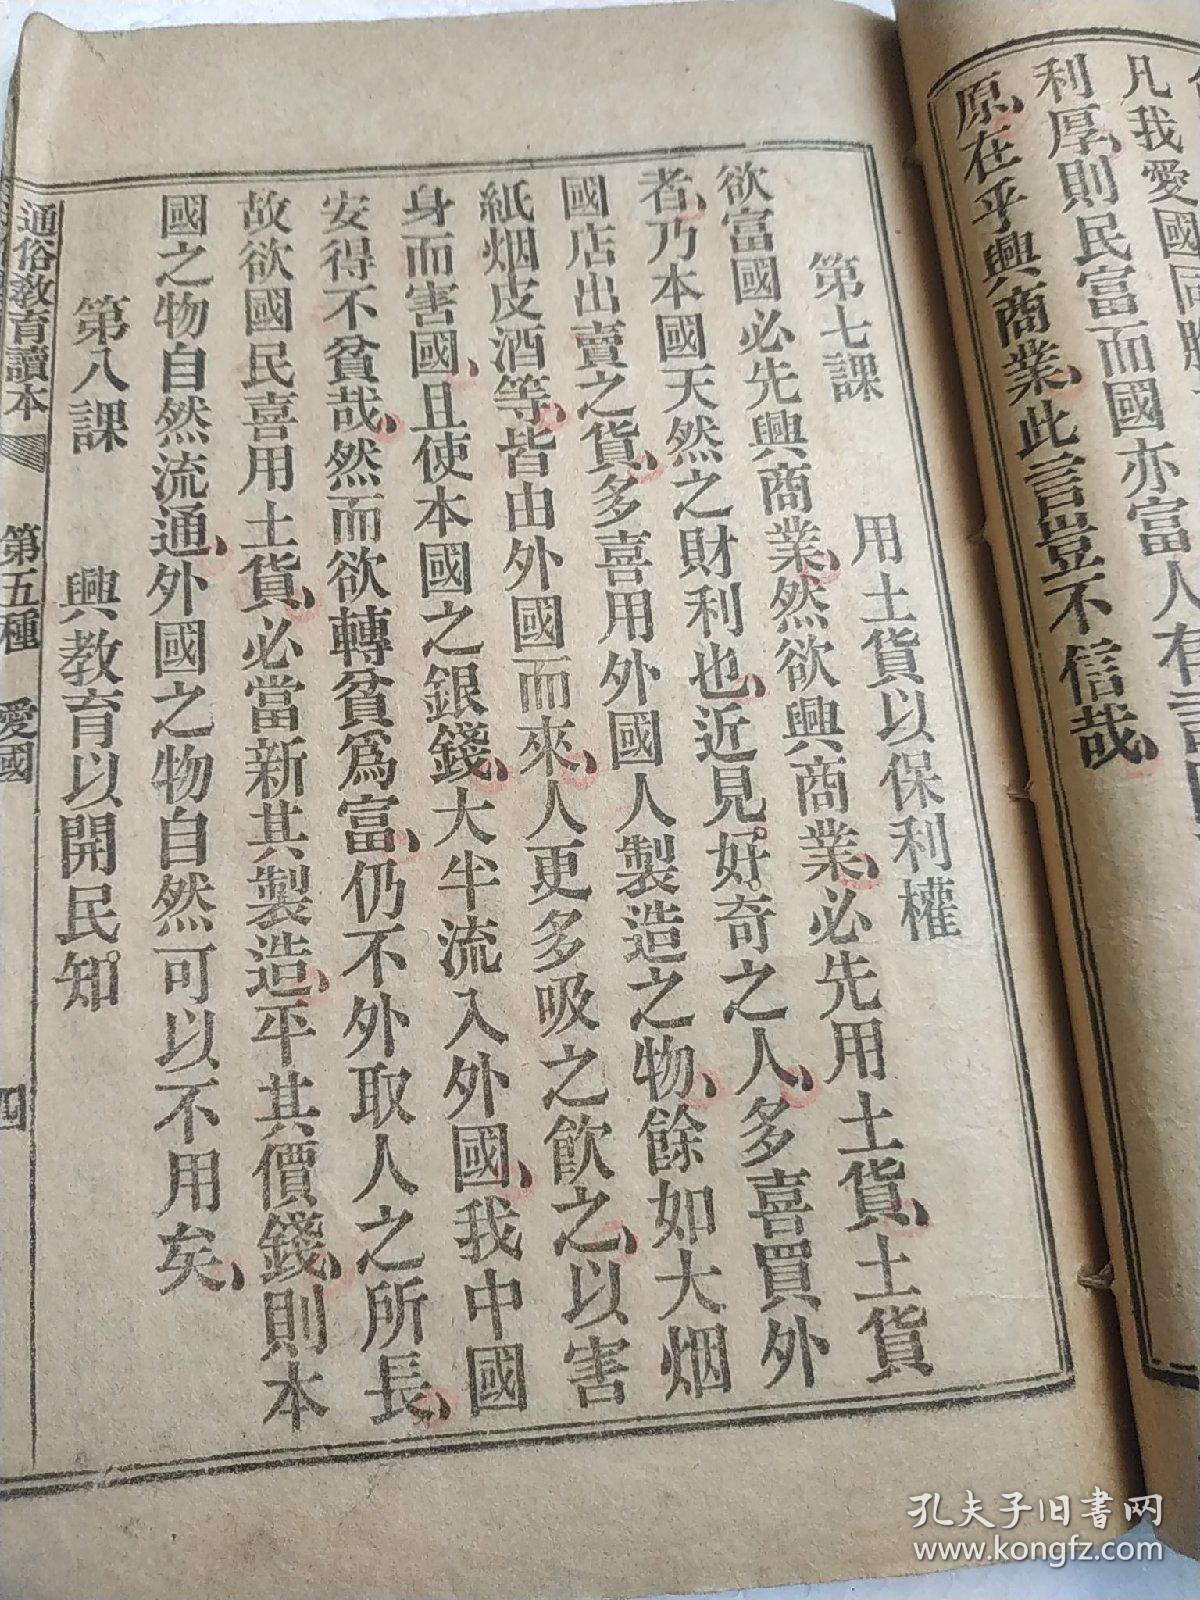 凡我愛國同胞
利厚、則民富而國亦富人有言曰
原、在乎興商業、此言豈不信哉、
第七課　用土貨以保利權
欲富國必先興商業、然欲興商業、必先用土貨、土貨
者、乃本國天然之財利也、近見好奇之人、多喜買外
國店出賣之貨、多喜用外國人製造之物、餘如大烟
紙烟皮酒等、皆由外國而來、人更多吸之飲之、以害
身而害國、且使本國之銀錢、大半流入外國、我中國
安得不貧哉、然而欲轉貧爲富、仍不外取人之所長、
故欲國民喜用土貨、必當新其製造、平其價錢、則本
國之物自然流通、外國之物自然可以不用矣、
第八課　興教育以開民知
通俗教育讀本　第五種　愛國　四
孔夫子旧书网
www.kongfz.com